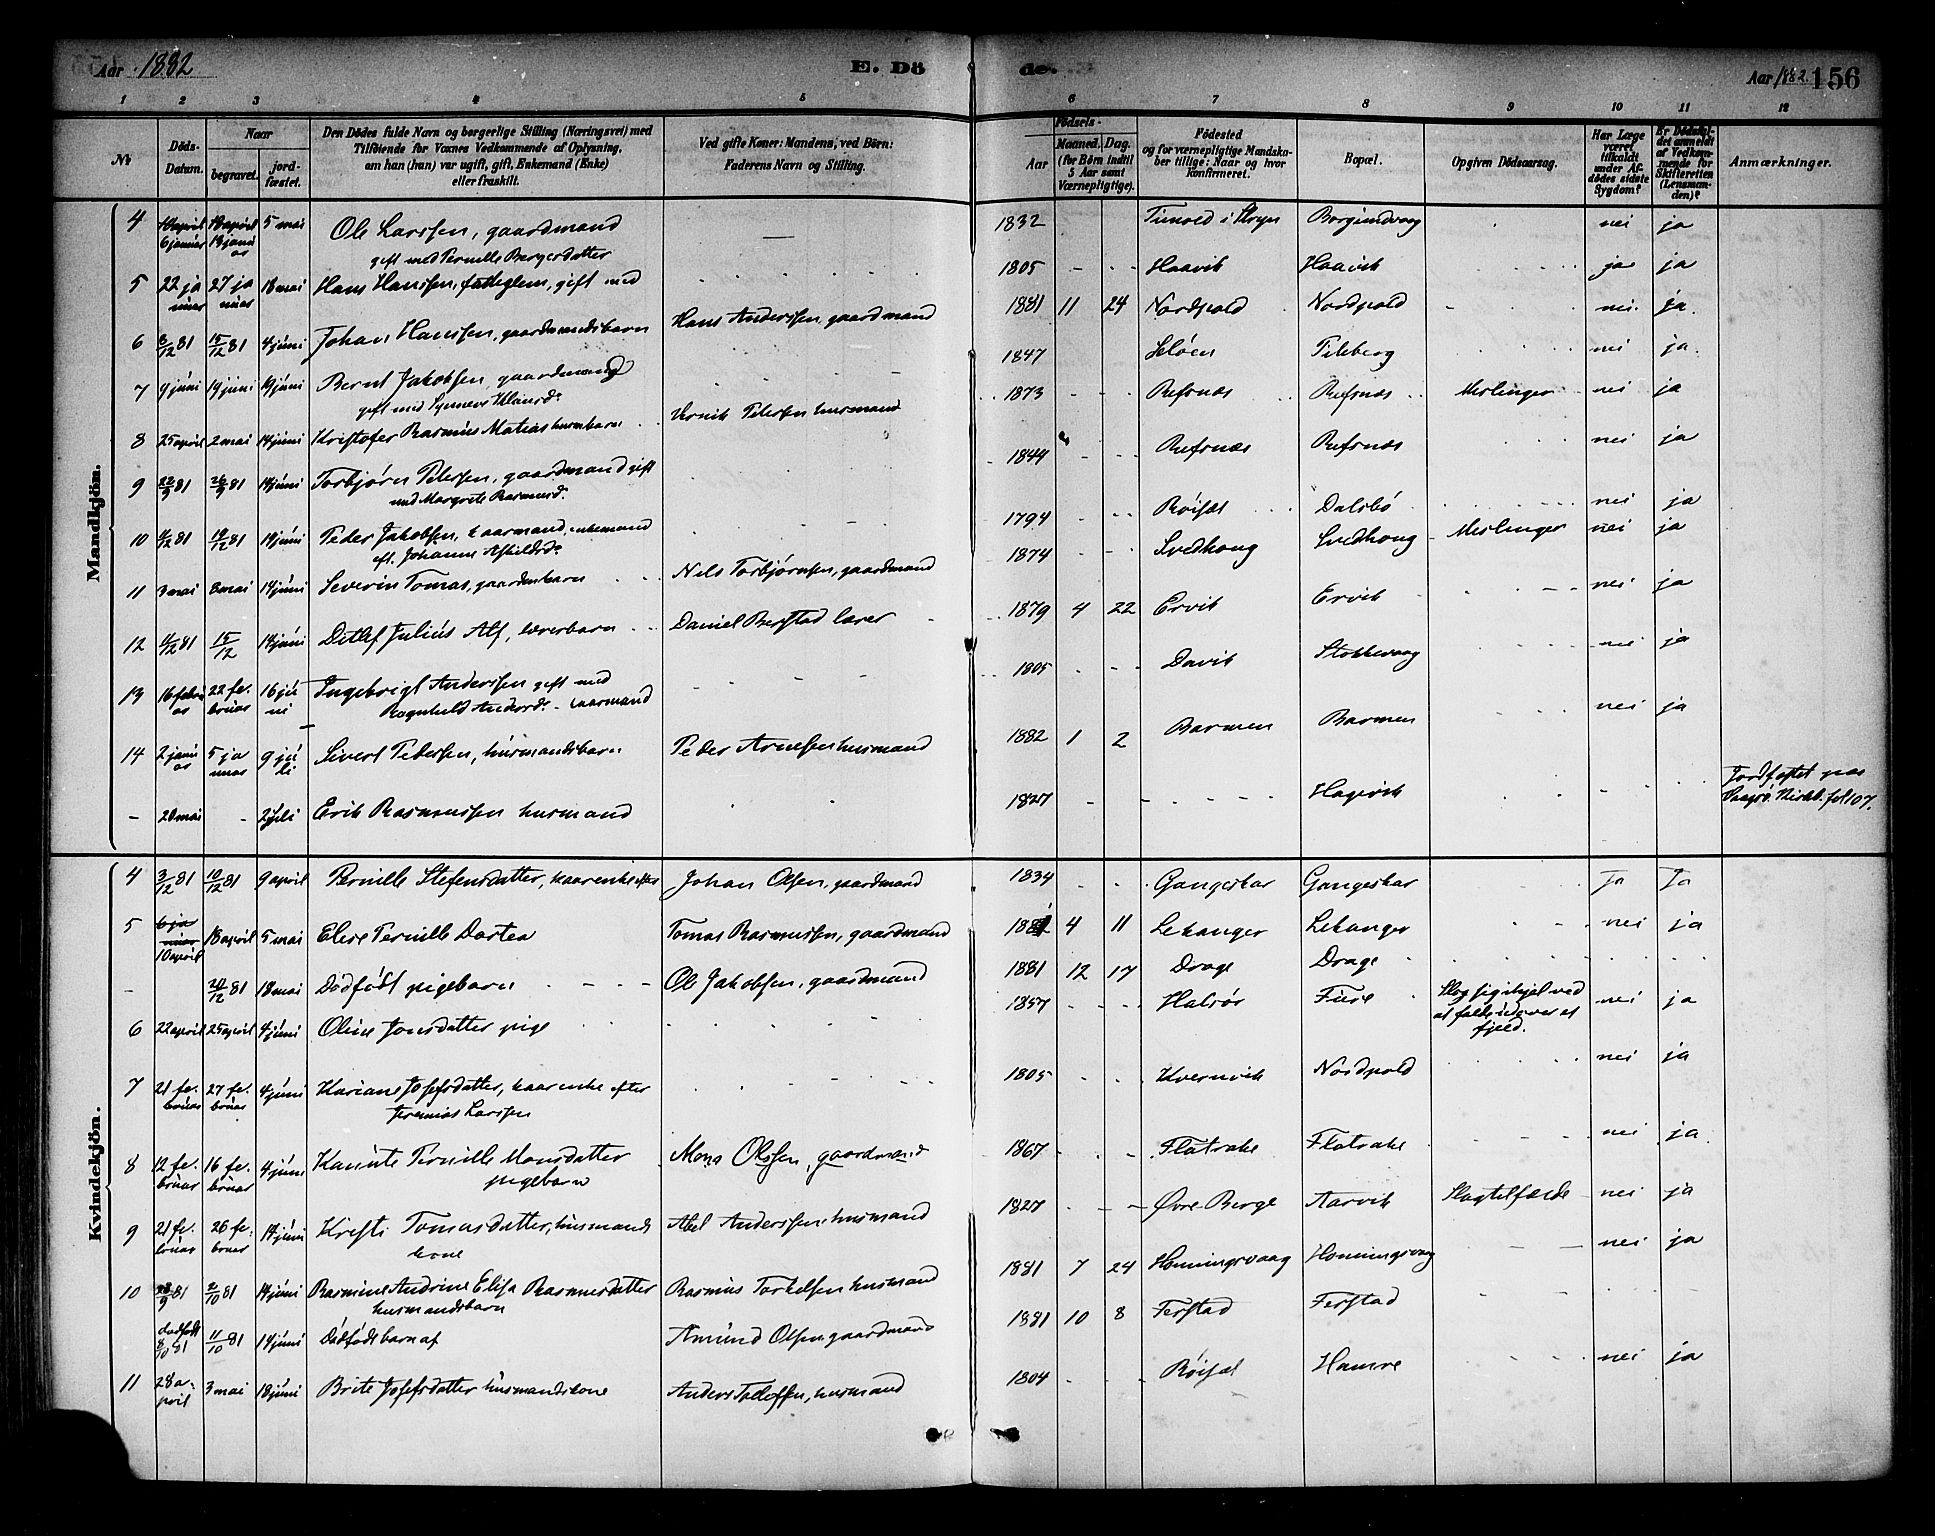 Aar 1882
E. Dö
de.
Aar 1882.
156
1 2 3 4 5 6 7 8 9 10 11 12
No
Döds-Datum.
Naar
begravet.
jord-fæstet.
Den Dödes fulde Navn og borgerlige Stilling (Næringsvei) med
Tilföiende for Voxnes Vedkommende af Oplysning,
om han (han) var ugift, gift, Enkemand (Enke)
eller fraskilt.
Ved gifte Koner: Mandens, ved Börn:
Faderens Navn og Stilling.
Födsels-
Aar
Maaned. Dag.
(for Börn indtil
5 Aar samt
Værnepligtige).
Födested
og for værnepligtige Mandska-
ber tillige: Naar og hvor
Konfirmeret.
Bopæl.
Opgiven Dödsaarsag.
Har Læge
været
tilkaldt
under Af-
dödes sidste
Sygdom?
Er Dödsfal-
det anmeldt
af Vedkom-
mende for
Skifteretten
(Lensman-
den)?
Anmærkninger.
Mandkjön.
4 10 april 6 januar 18 april 5 mai Ole Larssen, gaardmand — 1832 i Stryn nei ja
gift med Pernille Bergersdatter
5 22 januar 27 januar 18 mai Hans Hanssen, gift med 1805 Haavik Haavik ja ja
6 8/12 81 15/12 81 4 júni Johan Hanssen, gaardmandsbarn Hans Anderssen, gaardmand 1881 11 24 Nordpold Nordpold nei ja
7 9 júni 19 júni 19 júni Bernt Jakobsen, gaardmand 1847 nei ja
gift med
8 25 april 2 mai 14 júni Kristofer Rasmus Matias husmbarn Petersen husmand 1873 Refsnæs Refsnæs Meslinger nei ja
9 22/9 81 26/9 81 14 júni Torbjørn Petersen, gaardmand gift 1844 Refsnæs Refsnæs nei ja
med Margrete Rasmusd.
10 4/12 81 10/12 81 14 júni Peder Jakobsen, kaarmand, enkemand 1794 Røisæt Dalsbø nei ja
eft. Johanne
11 3 mai 8 mai 14 júni Severin Tomas, gaardmbarn Nils Torbjørnsen, gaardmand 1874 Svedhoug Svedhoug Meslinger nei ja
12 4/12 81 15/12 14 júni Detlef Julius Alf, lærerbarn Daniel Berstad lærer 1879 4 22 Ervik Ervik nei ja
13 16 februar 22 februar 16 júni Ingebrigt Anderssen gift med 1805 Davik Stokkevaag nei ja
Ragnhild Andersd. kaarmand
14 2 januar 5 januar 9 júli Sivert Pedersen, husmandsbarn Peder Arnesen husmand 1882 1 2 Barmen Barmen nei ja
– 20 mai - 2 júli Erik Rasmussen husmand 1827 Hagevik Jordfæstet paa
Vaagsø Kirkb. fol 107.
Kvindekjön.
4 3/12 81 10/12 81 9 april Pernille Stefensdatter, kaarenke efter Johan Olsen, gaardmand 1834 Gangeskar Gangeskar Ja Ja
5 6 januar 10 april 18 april 5 mai Elise Pernille Dortea Tomas Rasmussen, gaardmand 1881 4 11 Lekanger Lekanger nei ja
– 20/12 81 18 mai Dødfødt pigebarn Ole Jakobsen, gaardmand 1881 12 17 Drage Drage
6 22 april 25 april 4 júni Oline Jonsdatter pige 1857 Halsør Fure Slog sig ihjel ved
at falde udover et
fjeld. nei ja
7 21 februar 27 februar 4 júni Kariane Josefsdatter, kaarenke efter 1805 Kvernvik Nordpold nei ja
Jeremias Larssen
8 12 februar 16 februar 4 júni Kanute Pernille Monsdatter Mons Olssen, gaardmand 1867 Flatrake Flatrake nei ja
pigebarn
9 21 februar 26 februar 14 júni Kristi Tomasdatter, husmands Abel Anderssen husmand 1827 Øvre Berge Aarvik Slagtilfælde nei ja
kone
10 28/9 81 2/10 81 14 júni Rasmine Andrine Elisa Rasmusdatter Rasmus Torkelsen husmand 1881 7 24 Honningsvaag Honningsvaag nei ja
husmandsbarn
dødfødt 8/10 81 11/10 81 14 júni Dødfødt barn af Amund Olsen gaardmand 1881 10 8 Ferstad Ferstad
11 28 april 3 mai 18 júni Brite Josefsdatter husmandskone Anders Tollefsen, husmand 1804 Røisæt Hamre nei ja